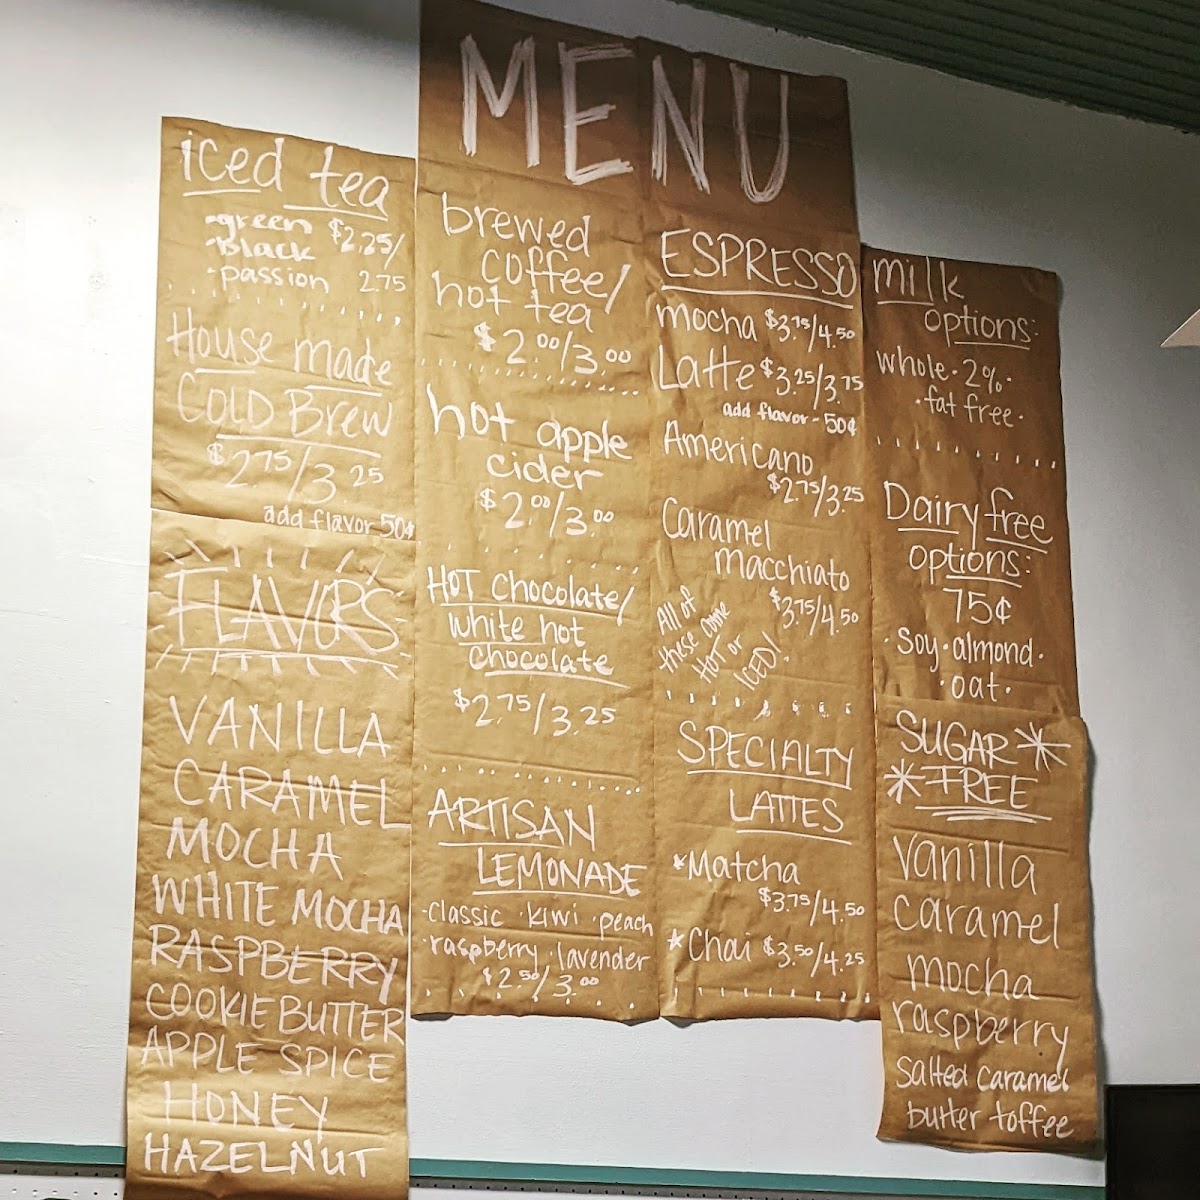 MENU
iced tea
·green $2.25/
·Black
·passion 2.75
House made
COLD Brew
$2.75/3.25
add flavor 50¢
FLAVORS
VANILLA
CARAMEL
MOCHA
WHITE MOCHA
RASPBERRY
COOKIE BUTTER
APPLE SPICE
HONEY
HAZELNUT
brewed
coffee/
hot tea
$2.00/3.00
hot apple
cider
$2.00/3.00
HOT chocolate/
white hot
chocolate
$2.75/3.25
ARTISAN
LEMONADE
·classic ·kiwi ·peach
·raspberry ·lavender
$2.50/3.00
ESPRESSO
mocha $3.75/4.50
Latte $3.25/3.75
add flavor - 50¢
Americano
$2.75/3.25
Caramel
macchiato
$3.75/4.50
All of
these come
HOT or
ICED!
SPECIALTY
LATTES
*Matcha
$3.75/4.50
*Chai $3.50/4.25
milk
options:
whole · 2% ·
· fat free ·
Dairy free
options:
75¢
· Soy · almond ·
· oat ·
SUGAR *
* FREE
vanilla
caramel
mocha
raspberry
salted caramel
butter toffee